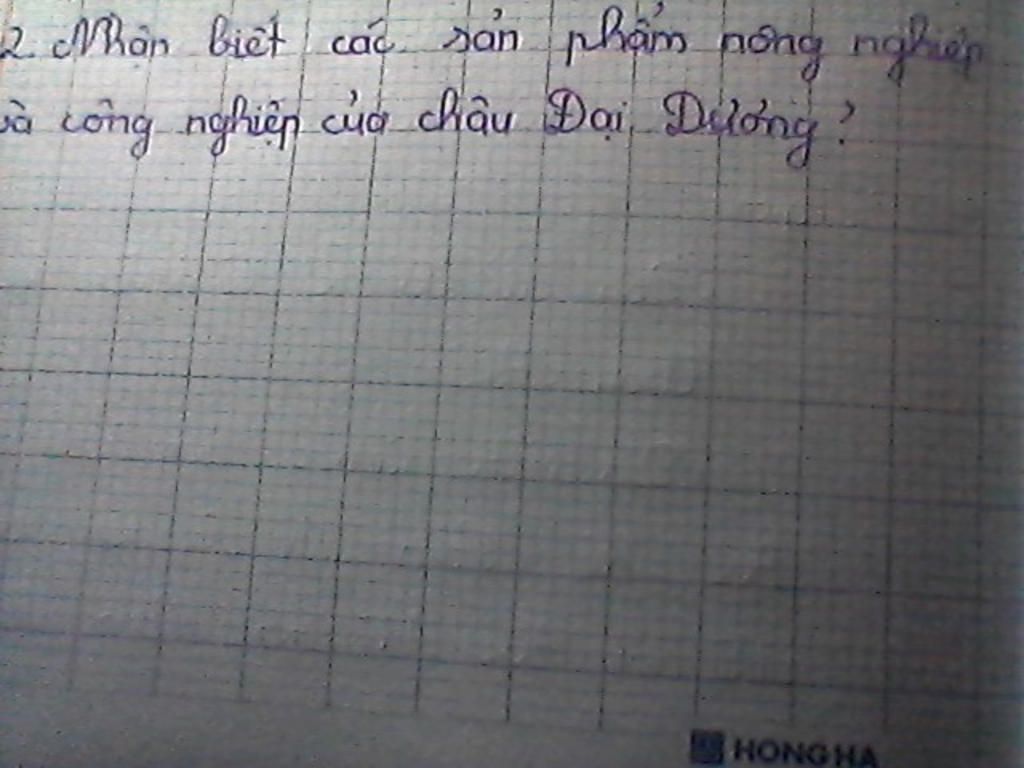 2. Nhận biết các sản phẩm nông nghiệp
và công nghiệp của châu Đại Dương?
HONG HA